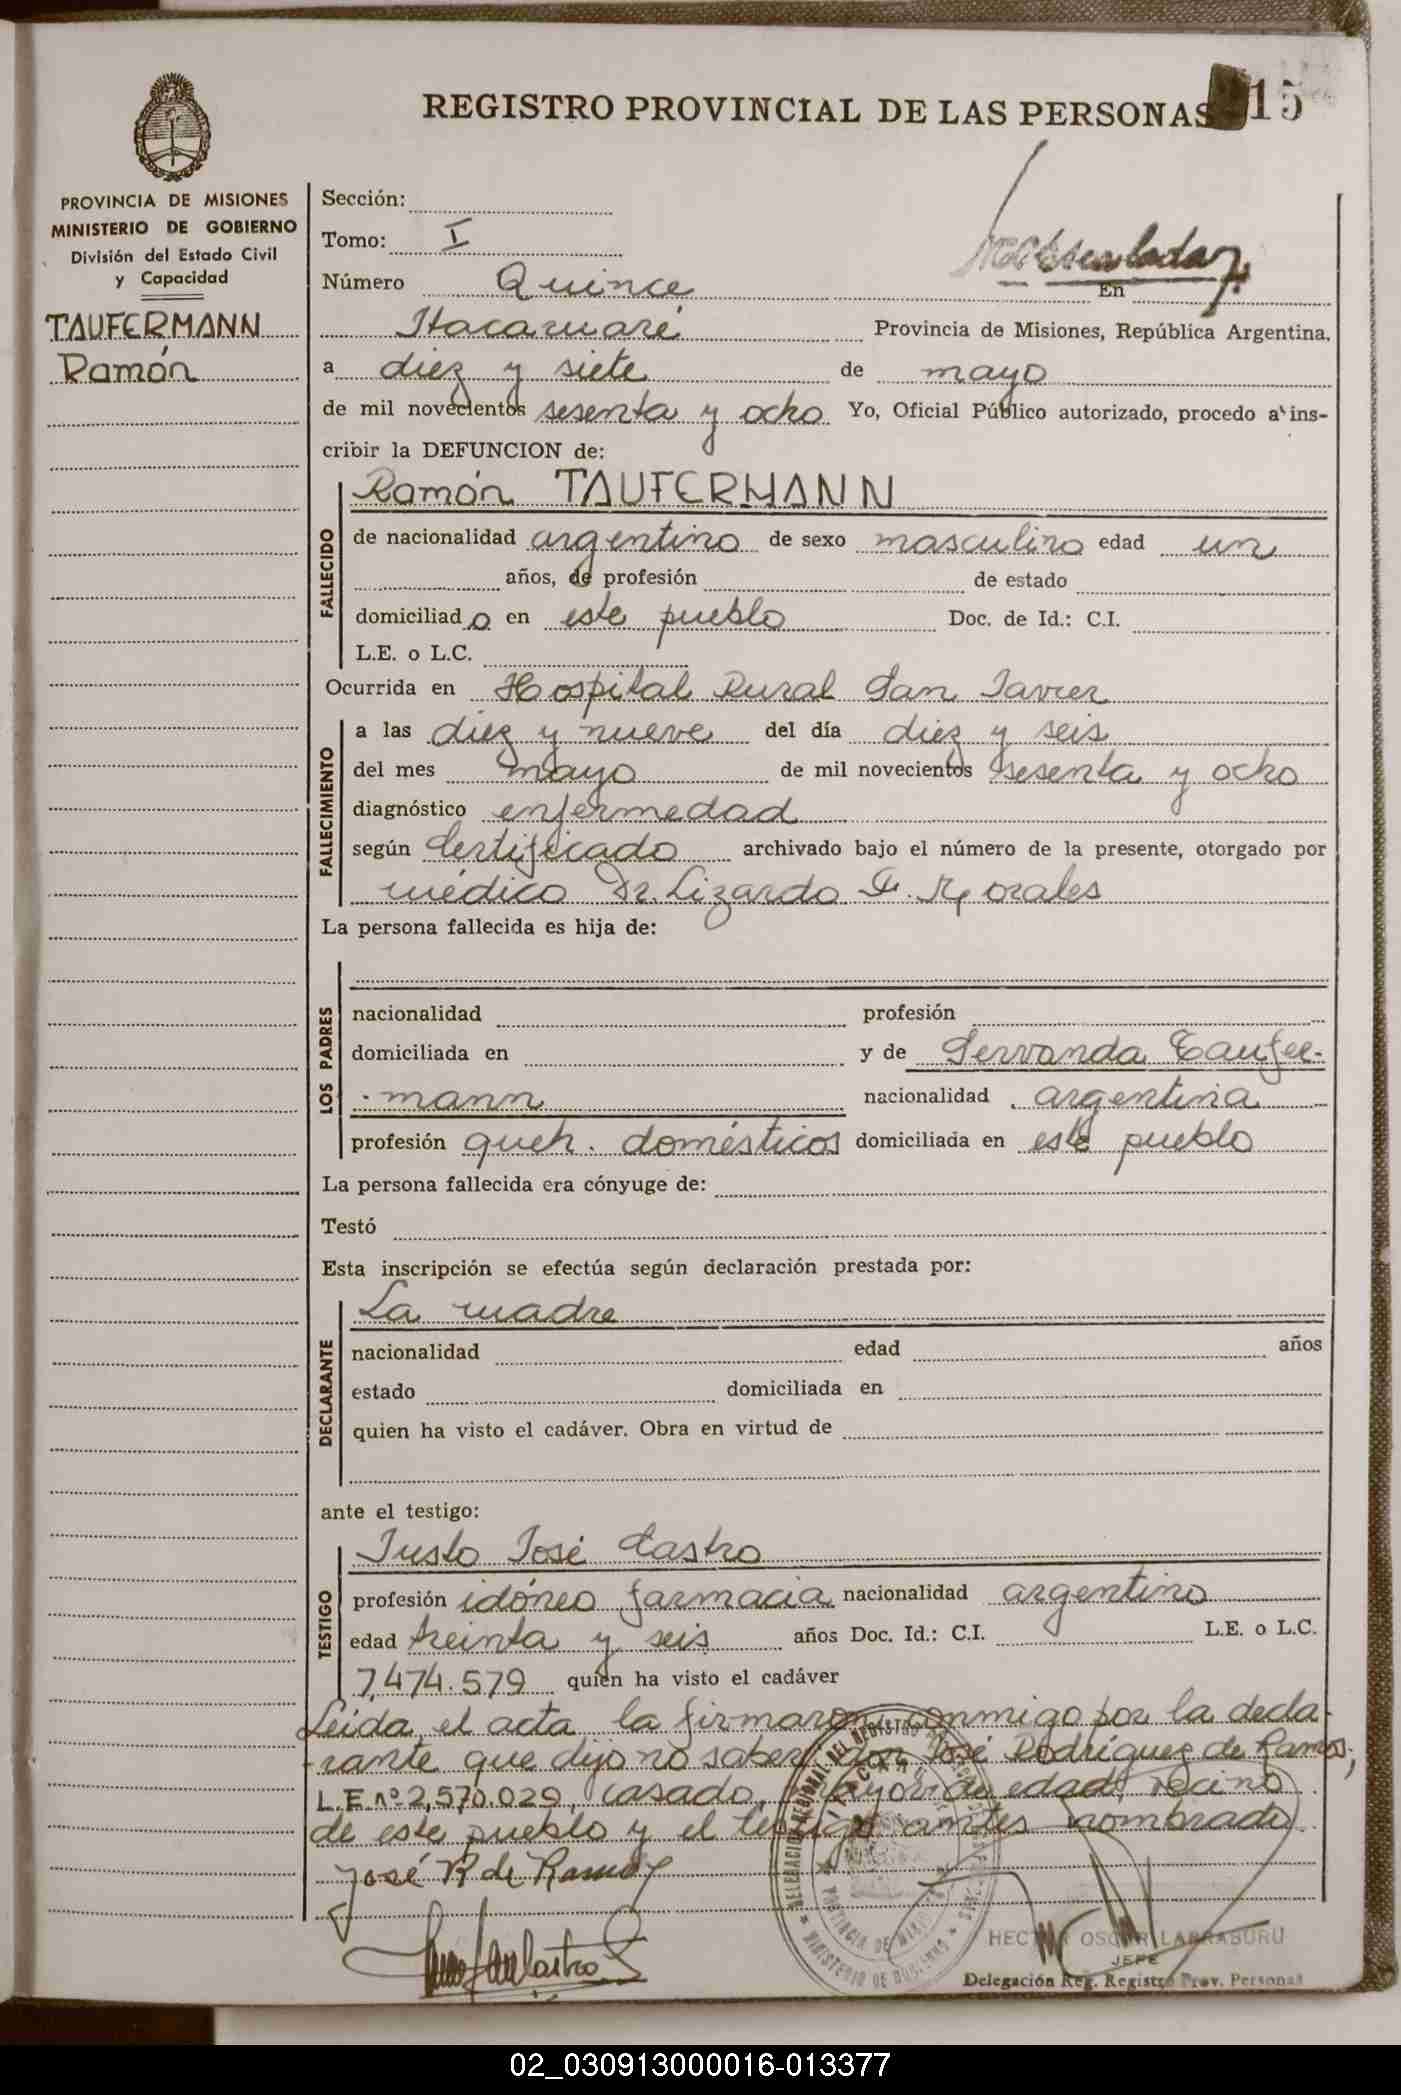 REGISTRO PROVINCIAL DE LAS PERSONAS 15
PROVINCIA DE MISIONES
MINISTERIO DE GOBIERNO
División del Estado Civil
y Capacidad
TAUFERMANN
Ramón
Sección:
Tomo: I
Número Quince En
Itacaruaré Provincia de Misiones, República Argentina,
a diez y siete de mayo
de mil novecientos sesenta y ocho Yo, Oficial Público autorizado, procedo a ins-
cribir la DEFUNCION de:
FALLECIDO
Ramón TAUFERMANN
de nacionalidad argentino de sexo masculino edad un
años, de profesión de estado
domiciliado en este pueblo Doc. de Id.: C.I.
L.E. o L.C.
Ocurrida en Hospital Rural San Javier
FALLECIMIENTO
a las diez y nueve del día diez y seis
del mes mayo de mil novecientos sesenta y ocho
diagnóstico enfermedad
según Certificado archivado bajo el número de la presente, otorgado por
médico Dr. Lizardo F. Morales
La persona fallecida es hija de:
LOS PADRES
nacionalidad profesión
domiciliada en y de Servanda Taufer-
-mann nacionalidad argentina
profesión queh. domésticos domiciliada en este pueblo
La persona fallecida era cónyuge de:
Testó
Esta inscripción se efectúa según declaración prestada por:
DECLARANTE
La madre
nacionalidad edad años
estado domiciliada en
quien ha visto el cadáver. Obra en virtud de
ante el testigo:
TESTIGO
Justo José Castro
profesión idóneo farmacia nacionalidad argentino
edad treinta y seis años Doc. Id.: C.I. L.E. o L.C.
7.474.579 quien ha visto el cadáver
Leida el acta la firmaron conmigo por la decla-
rante que dijo no saber don José Rodríguez de Ramos,
L.E.nº 2,570.029, casado, mayor de edad, vecino
de este pueblo y el testigo antes nombrado.
José R de Ramos
HECTOR OSCAR LARRABURU
JEFE
Delegación Reg. Registro Prov. Personas
02_030913000016-013377